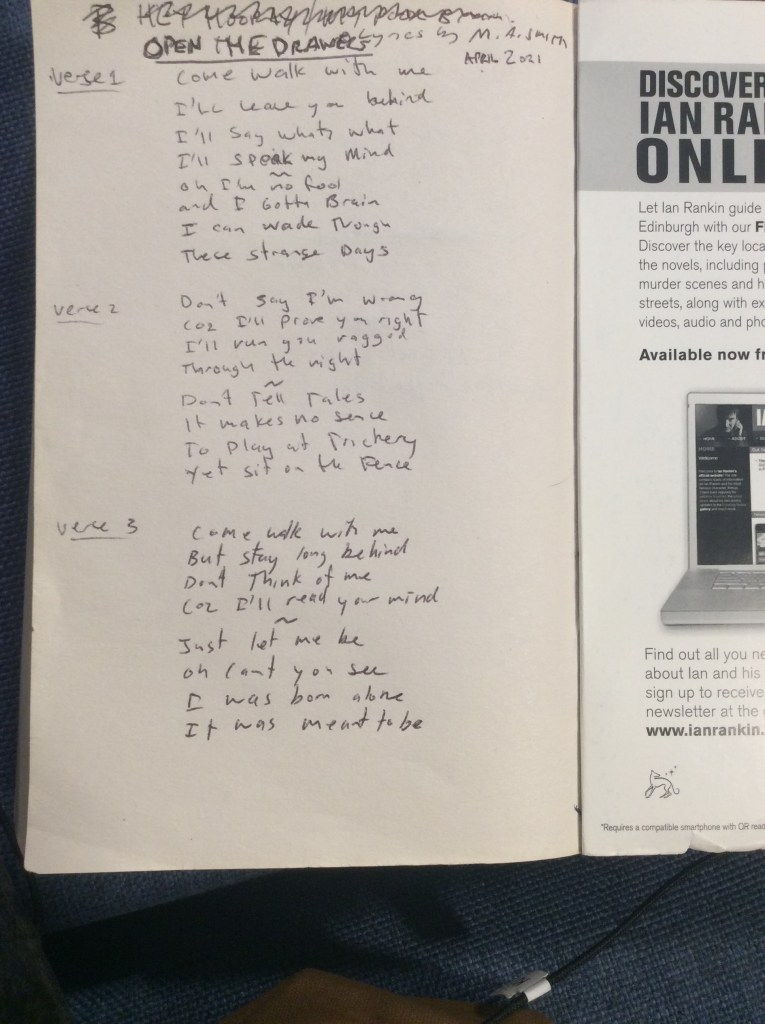 OPEN THE DRAWERS Lyrics by M. A. Smith
APRIL 2021
verse 1
Come walk with me
I'll leave you behind
I'll say whats what
I'll speak my mind
~
oh I'm no fool
and I Gotta Brain
I can wade Through
These strange Days
verse 2
Don't say I'm wrong
Coz I'll prove you right
I'll run you ragged
Through the night
~
Don't Tell Tales
It makes no sence
To Play at Trichery
Yet sit on the Fence
verse 3
Come walk with me
But stay long behind
Dont Think of me
Coz I'll read your mind
~
Just let me be
oh Cant you see
I was born alone
It was meant to be
DISCOVER
IAN RA
ONLI
Let Ian Rankin guide
Edinburgh with our F
Discover the key loca
the novels, including
murder scenes and h
streets, along with ex
videos, audio and pho
Available now fr
Find out all you ne
about Ian and his
sign up to receive
newsletter at the
www.ianrankin.
*Requires a compatible smartphone with QR read